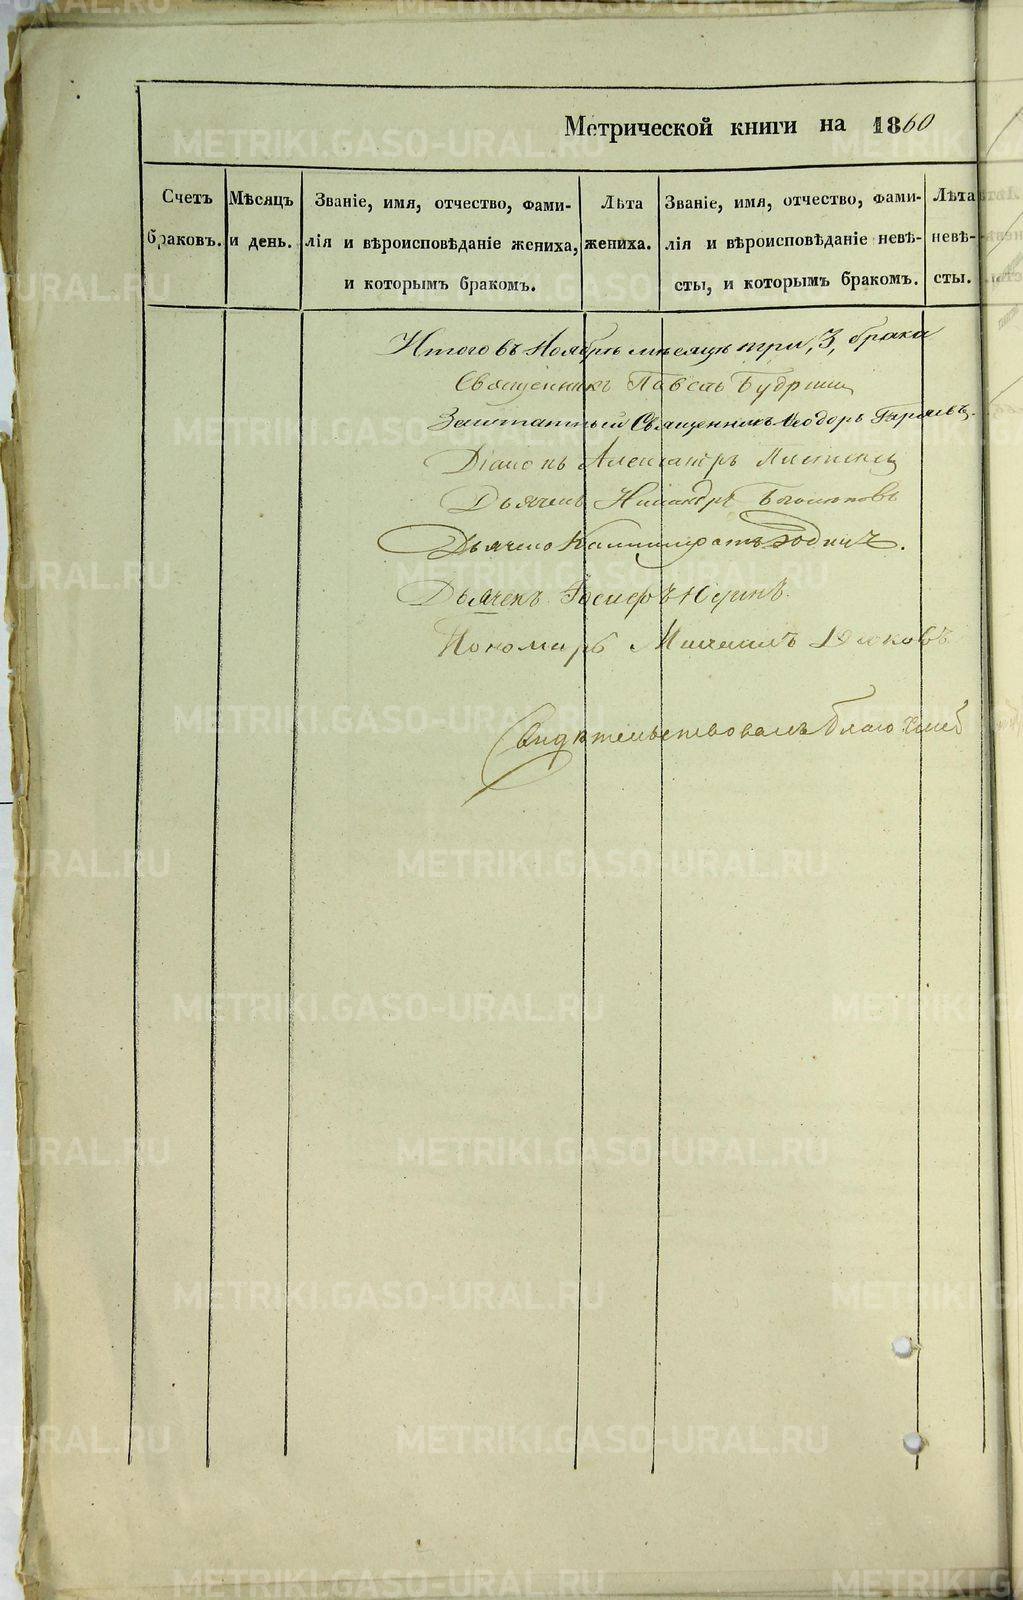 Метрической книги на 1860
Счетъ браковъ.
Мѣсяцъ и день.
Званіе, имя, отчество, фами-
лія и вѣроисповѣданіе жениха,
и которымъ бракомъ.
Лѣта
жениха.
Званіе, имя, отчество, фами-
лія и вѣроисповѣданіе невѣ-
сты, и которымъ бракомъ.
Лѣта
невѣ-
сты.
Итого въ Ноябрѣ мѣсяцѣ три, 3, брака
Священникъ Павелъ
Заштатный Священникъ Ѳеодоръ
Діаконъ Александръ
Дьячекъ Никандръ
Дьячекъ
Дьячекъ
Пономарь Михаилъ
Свидѣтельствовалъ Благочинный
METRIKI.GASO-URAL.RU